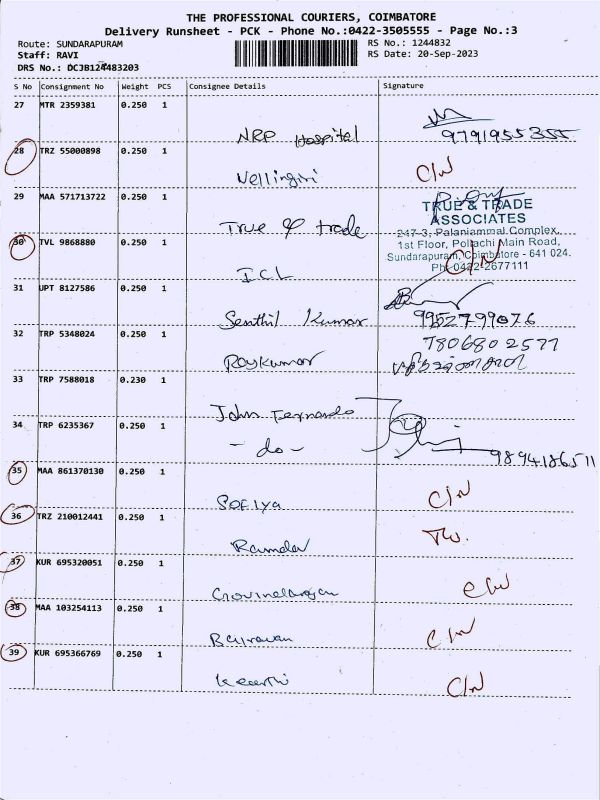 THE PROFESSIONAL COURIERS, COIMBATORE
Delivery Runsheet - PCK - Phone No.:0422-3505555 - Page No.:3
Route: SUNDARAPURAM
RS No.: 1244832
Staff: RAVI
RS Date: 20-Sep-2023
DRS No.: DCJB124483203
S No Consignment No Weight PCS Consignee Details Signature
27 MTR 2359381 0.250 1
NRP Hospital 9791955355
28 TRZ 55000898 0.250 1
Vellingiri C/N
29 MAA 571713722 0.250 1
True & trade
TRUE & TRADE
ASSOCIATES
247-3, Palaniammal Complex,
1st Floor, Pollachi Main Road,
Sundarapuram, Coimbatore - 641 024.
Ph: 0422-2677111
30 TVL 9868880 0.250 1
I.C.L C/N
31 UPT 8127586 0.250 1
Senthil Kumar 9952799076
32 TRP 5348024 0.250 1
Roykumar 7806802577
33 TRP 7588018 0.230 1
John Fernando
34 TRP 6235367 0.250 1
- do - 9894186511
35 MAA 861370130 0.250 1
Sofiya C/N
36 TRZ 210012441 0.250 1
Ramdev
37 KUR 695320051 0.250 1
Govindarajan C/N
38 MAA 103254113 0.250 1
Bairavan C/N
39 KUR 695366769 0.250 1
Keerthi C/N